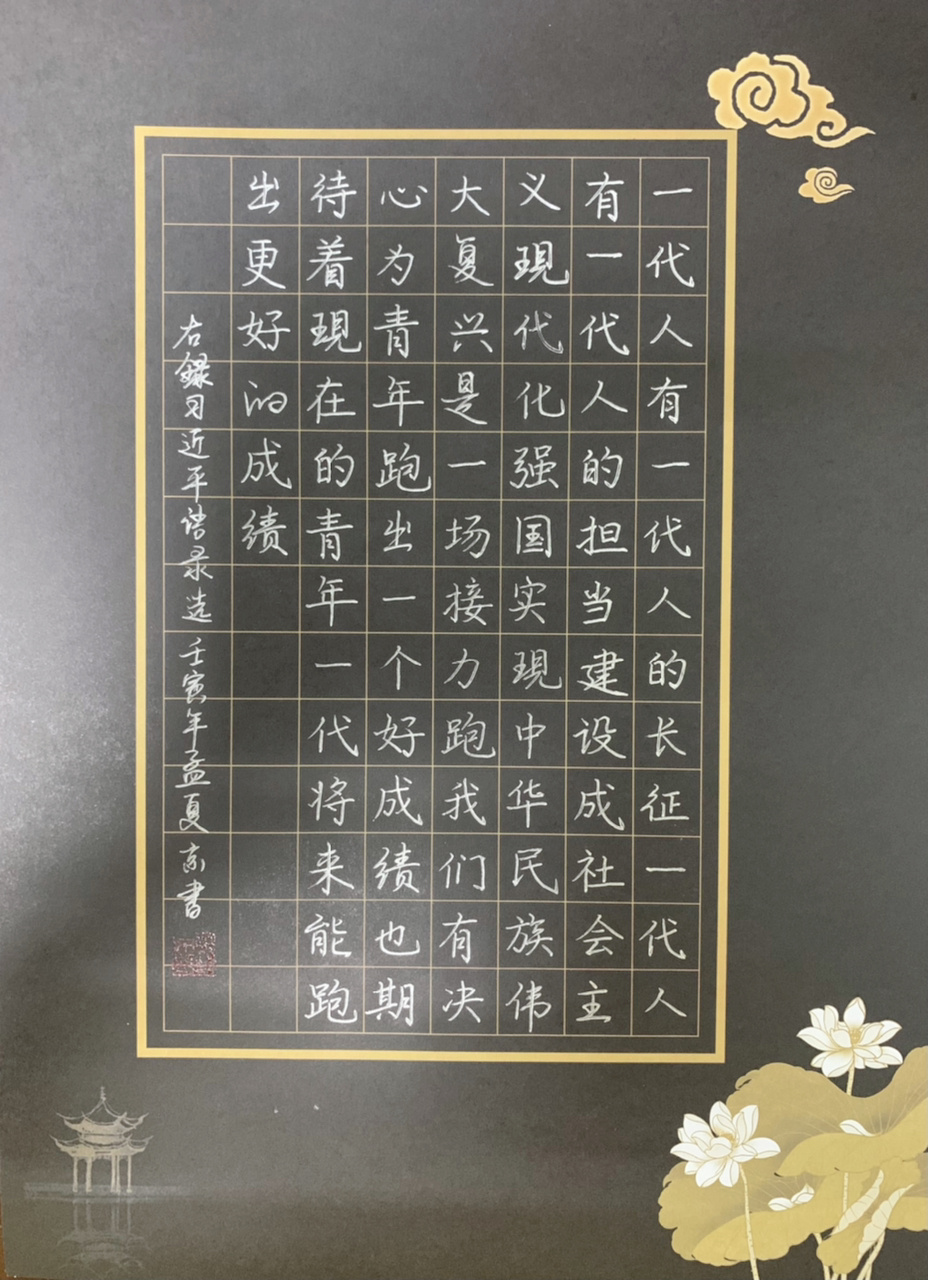 一代人有一代人的长征一代人
有一代人的担当建设成社会主
义现代化强国实现中华民族伟
大夏兴是一场接力跑我们有决
心为青年跑出一个好成绩也期
待着现在的青年一代将来能跑
出更好的成绩
右録习近平语录选 壬寅年孟夏 京書